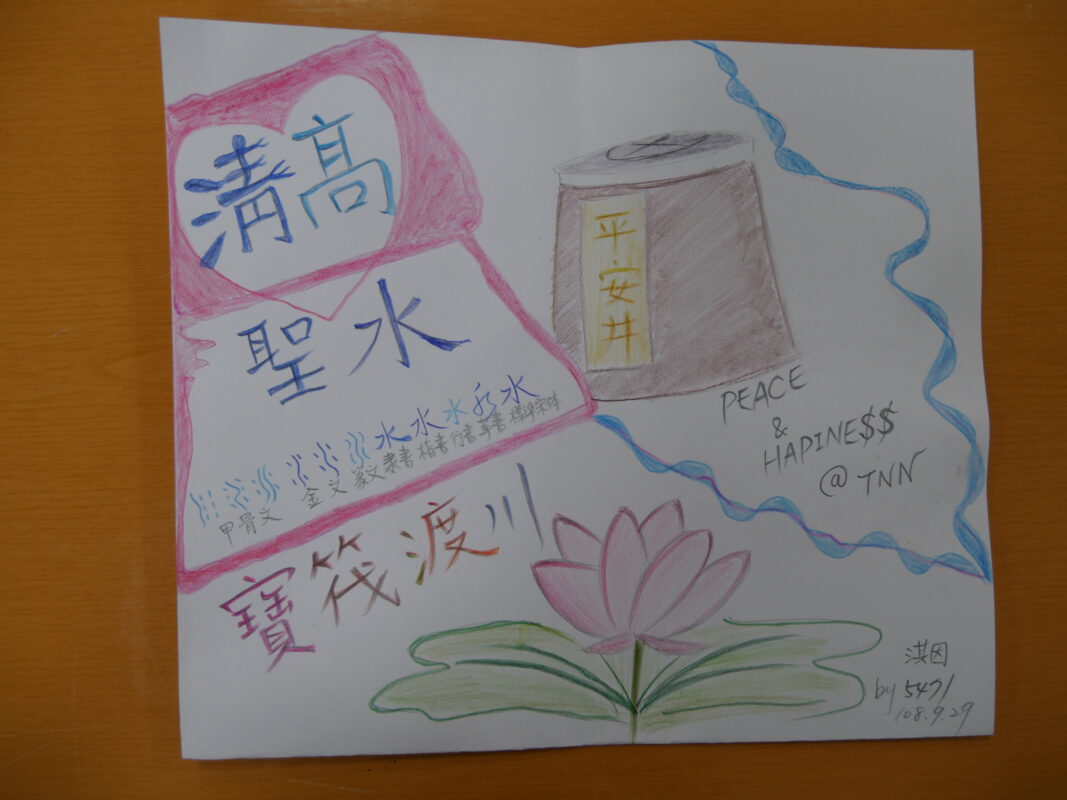 清高
聖水
水水水水水
甲骨文 金文 篆文 隸書 楷書 行書 草書 標準宋体
寶筏渡川
平安井
PEACE
&
HAPINE$$
@ TNN
淇因
by 5471
108.9.29